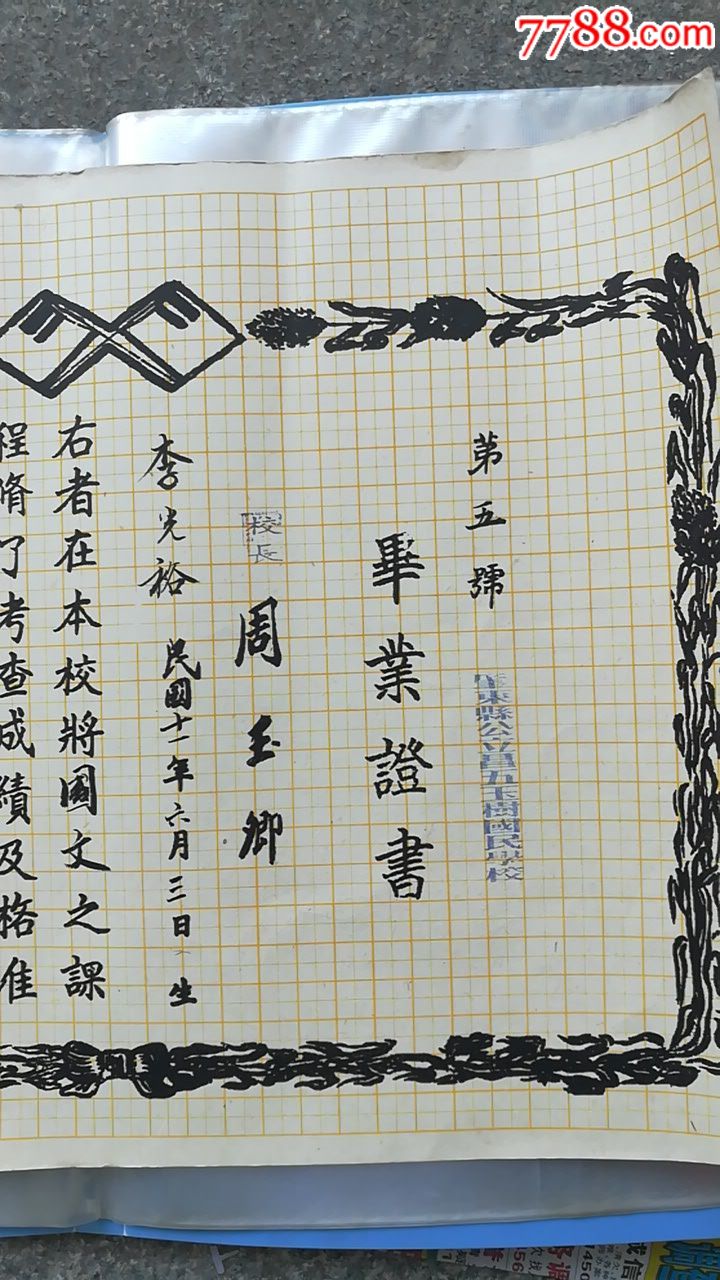 7788.com
第五號
畢業證書
縣公立昌五玉樹國民學校
校長 周玉卿
李光裕 民國十一年六月三日生
右者在本校將國文之課
程脩了考查成績及格准